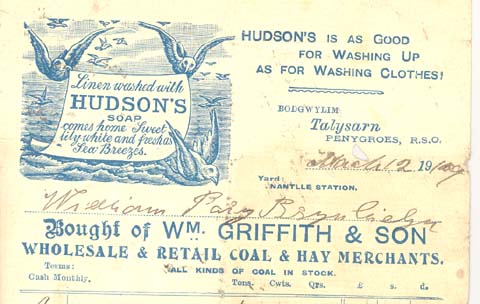 HUDSON'S IS AS GOOD
FOR WASHING UP
AS FOR WASHING CLOTHES!
Linen washed with
HUDSON'S
SOAP
comes home Sweet
lily white and fresh as
Sea Breezes.
BODGWYLIM
Talysarn
PENYGROES, R.S.O.
March 12 19
Yard:
NANTLLE STATION.
William Parry
Bought of WM. GRIFFITH & SON
WHOLESALE & RETAIL COAL & HAY MERCHANTS.
Terms: ALL KINDS OF COAL IN STOCK.
Cash Monthly. Tons. Cwts. Qrs. £ s. d.